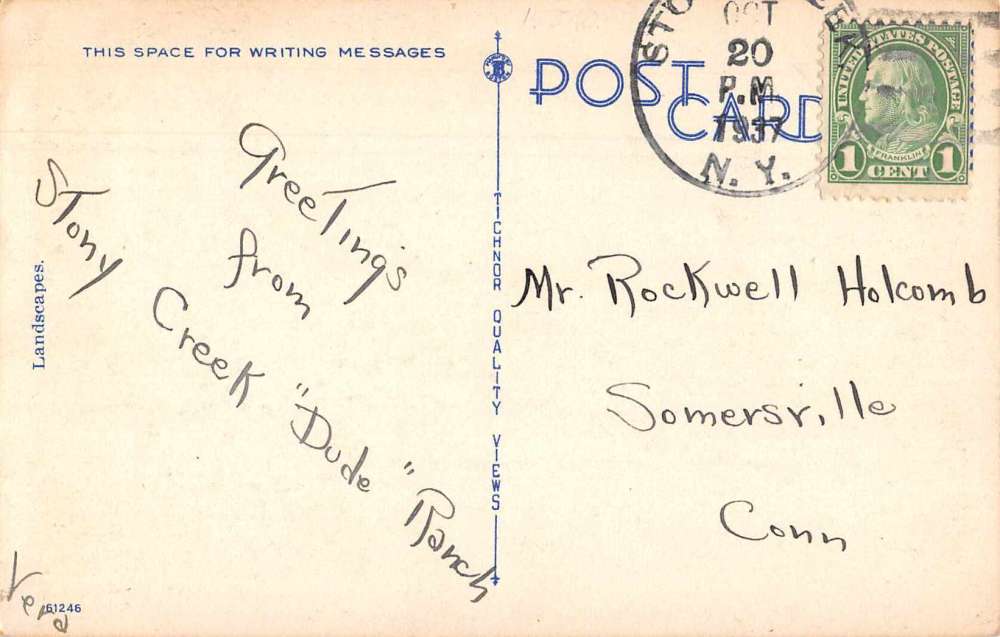 THIS SPACE FOR WRITING MESSAGES
POST
CARD
OCT
20
P.M.
1937
N. Y.
UNITED STATES POSTAGE
FRANKLIN
1 CENT 1
Greetings
from
Stony
Creek "Dude" Ranch
Vera
Landscapes.
61246
TICHNOR QUALITY VIEWS
Mr. Rockwell Holcomb
Somersville
Conn